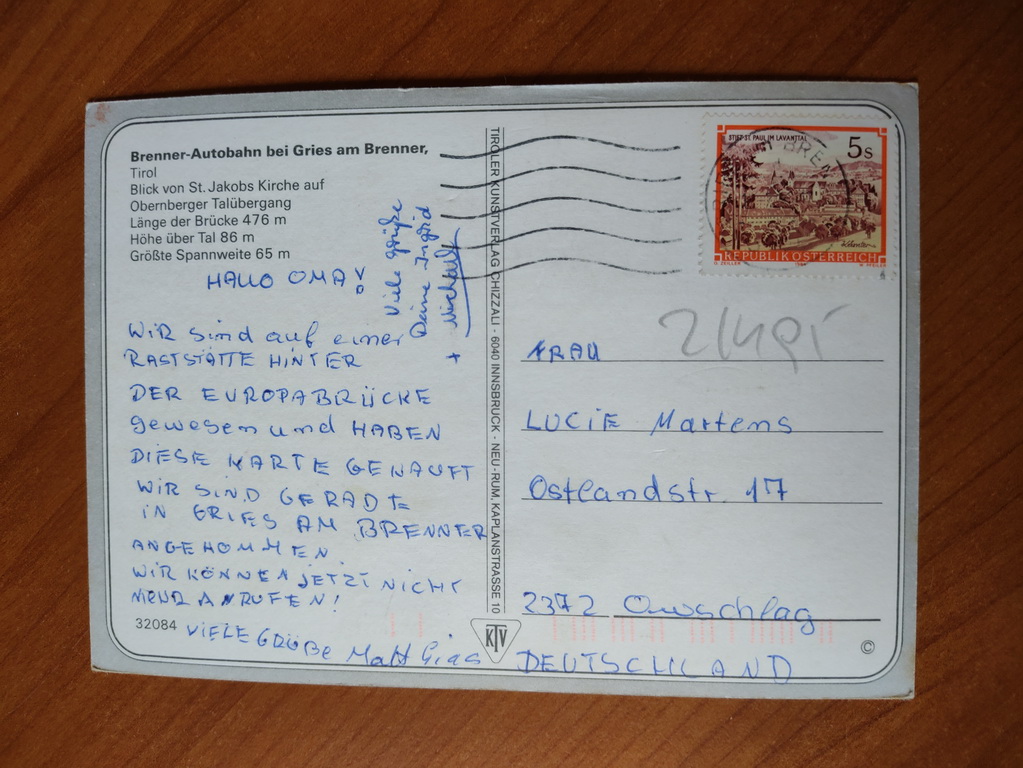 Brenner-Autobahn bei Gries am Brenner,
Tirol
Blick von St. Jakobs Kirche auf
Obernberger Talübergang
Länge der Brücke 476 m
Höhe über Tal 86 m
Größte Spannweite 65 m
HALLO OMA!
WIR sind auf einer
RASTSTÄTTE HINTER
DER EUROPABRÜCKE
gewesen und HABEN
DIESE KARTE GEKAUFT
WIR SIND GERADE
IN GRIES AM BRENNER
ANGEKOMMEN
WIR KÖNNEN JETZT NICHT
ANRUFEN!
VIELE GRÜßE Matthias
Viele Grüße
Deine Ingrid
+ Michael
32084
TIROLER KUNSTVERLAG CHIZZALI · 6040 INNSBRUCK · NEU-RUM, KAPLANSTRASSE 10
KTV
STIFT ST. PAUL IM LAVANTTAL
5s
REPUBLIK ÖSTERREICH
FRAU
LUCIE Martens
Ostlandstr. 17
2372 Owschlag
DEUTSCHLAND
©